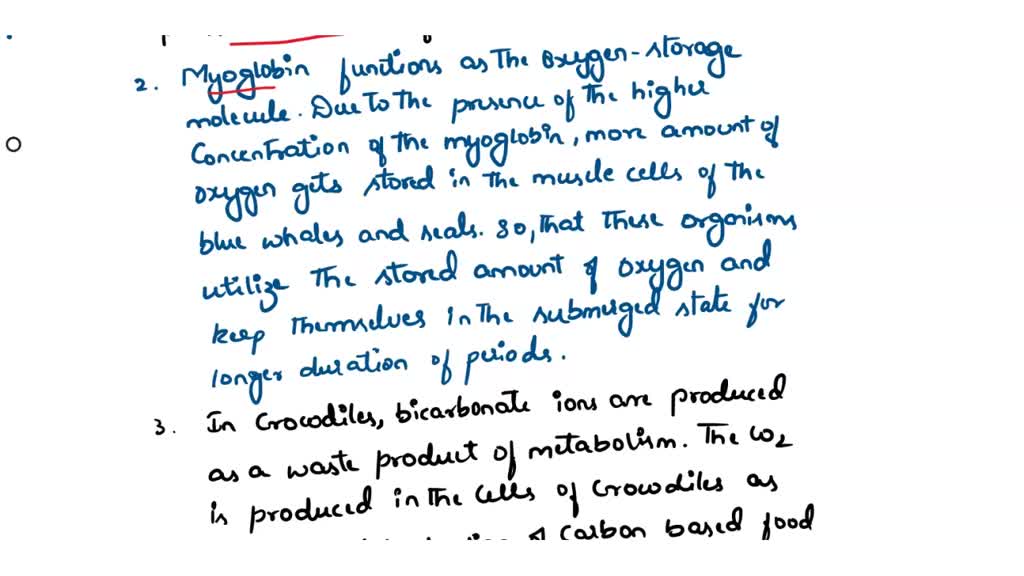 2. Myoglobin functions as the oxygen-storage
molecule. Due to the presence of the higher
Concentration of the myoglobin, more amount of
oxygen gets stored in the muscle cells of the
blue whales and seals. So, that these organisms
utilize the stored amount of oxygen and
keep themselves in the submerged state for
longer duration of periods.
3. In Crocodiles, bicarbonate ions are produced
as a waste product of metabolism. The CO2
is produced in the cells of Crocodiles as
of carbon based food